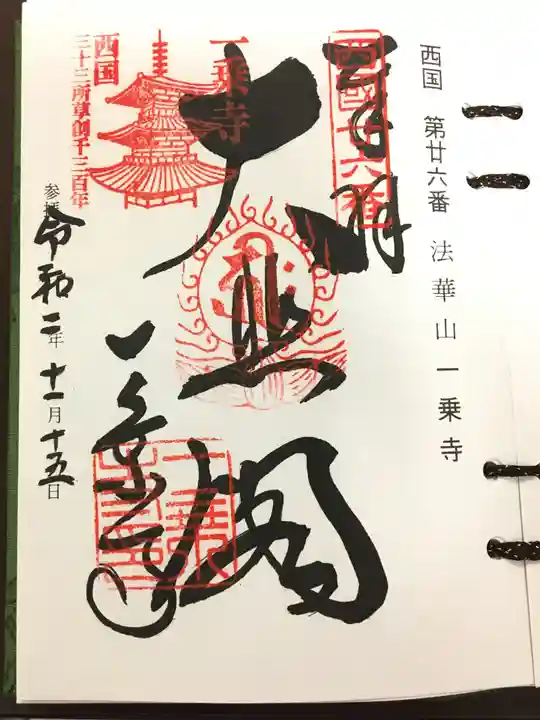 西国 第廿六番 法華山 一乗寺
奉拝
西國廿六番
大悲閣
一乗寺
一乗寺
西国
三十三所草創千三百年
参拝 令和二年十一月十五日